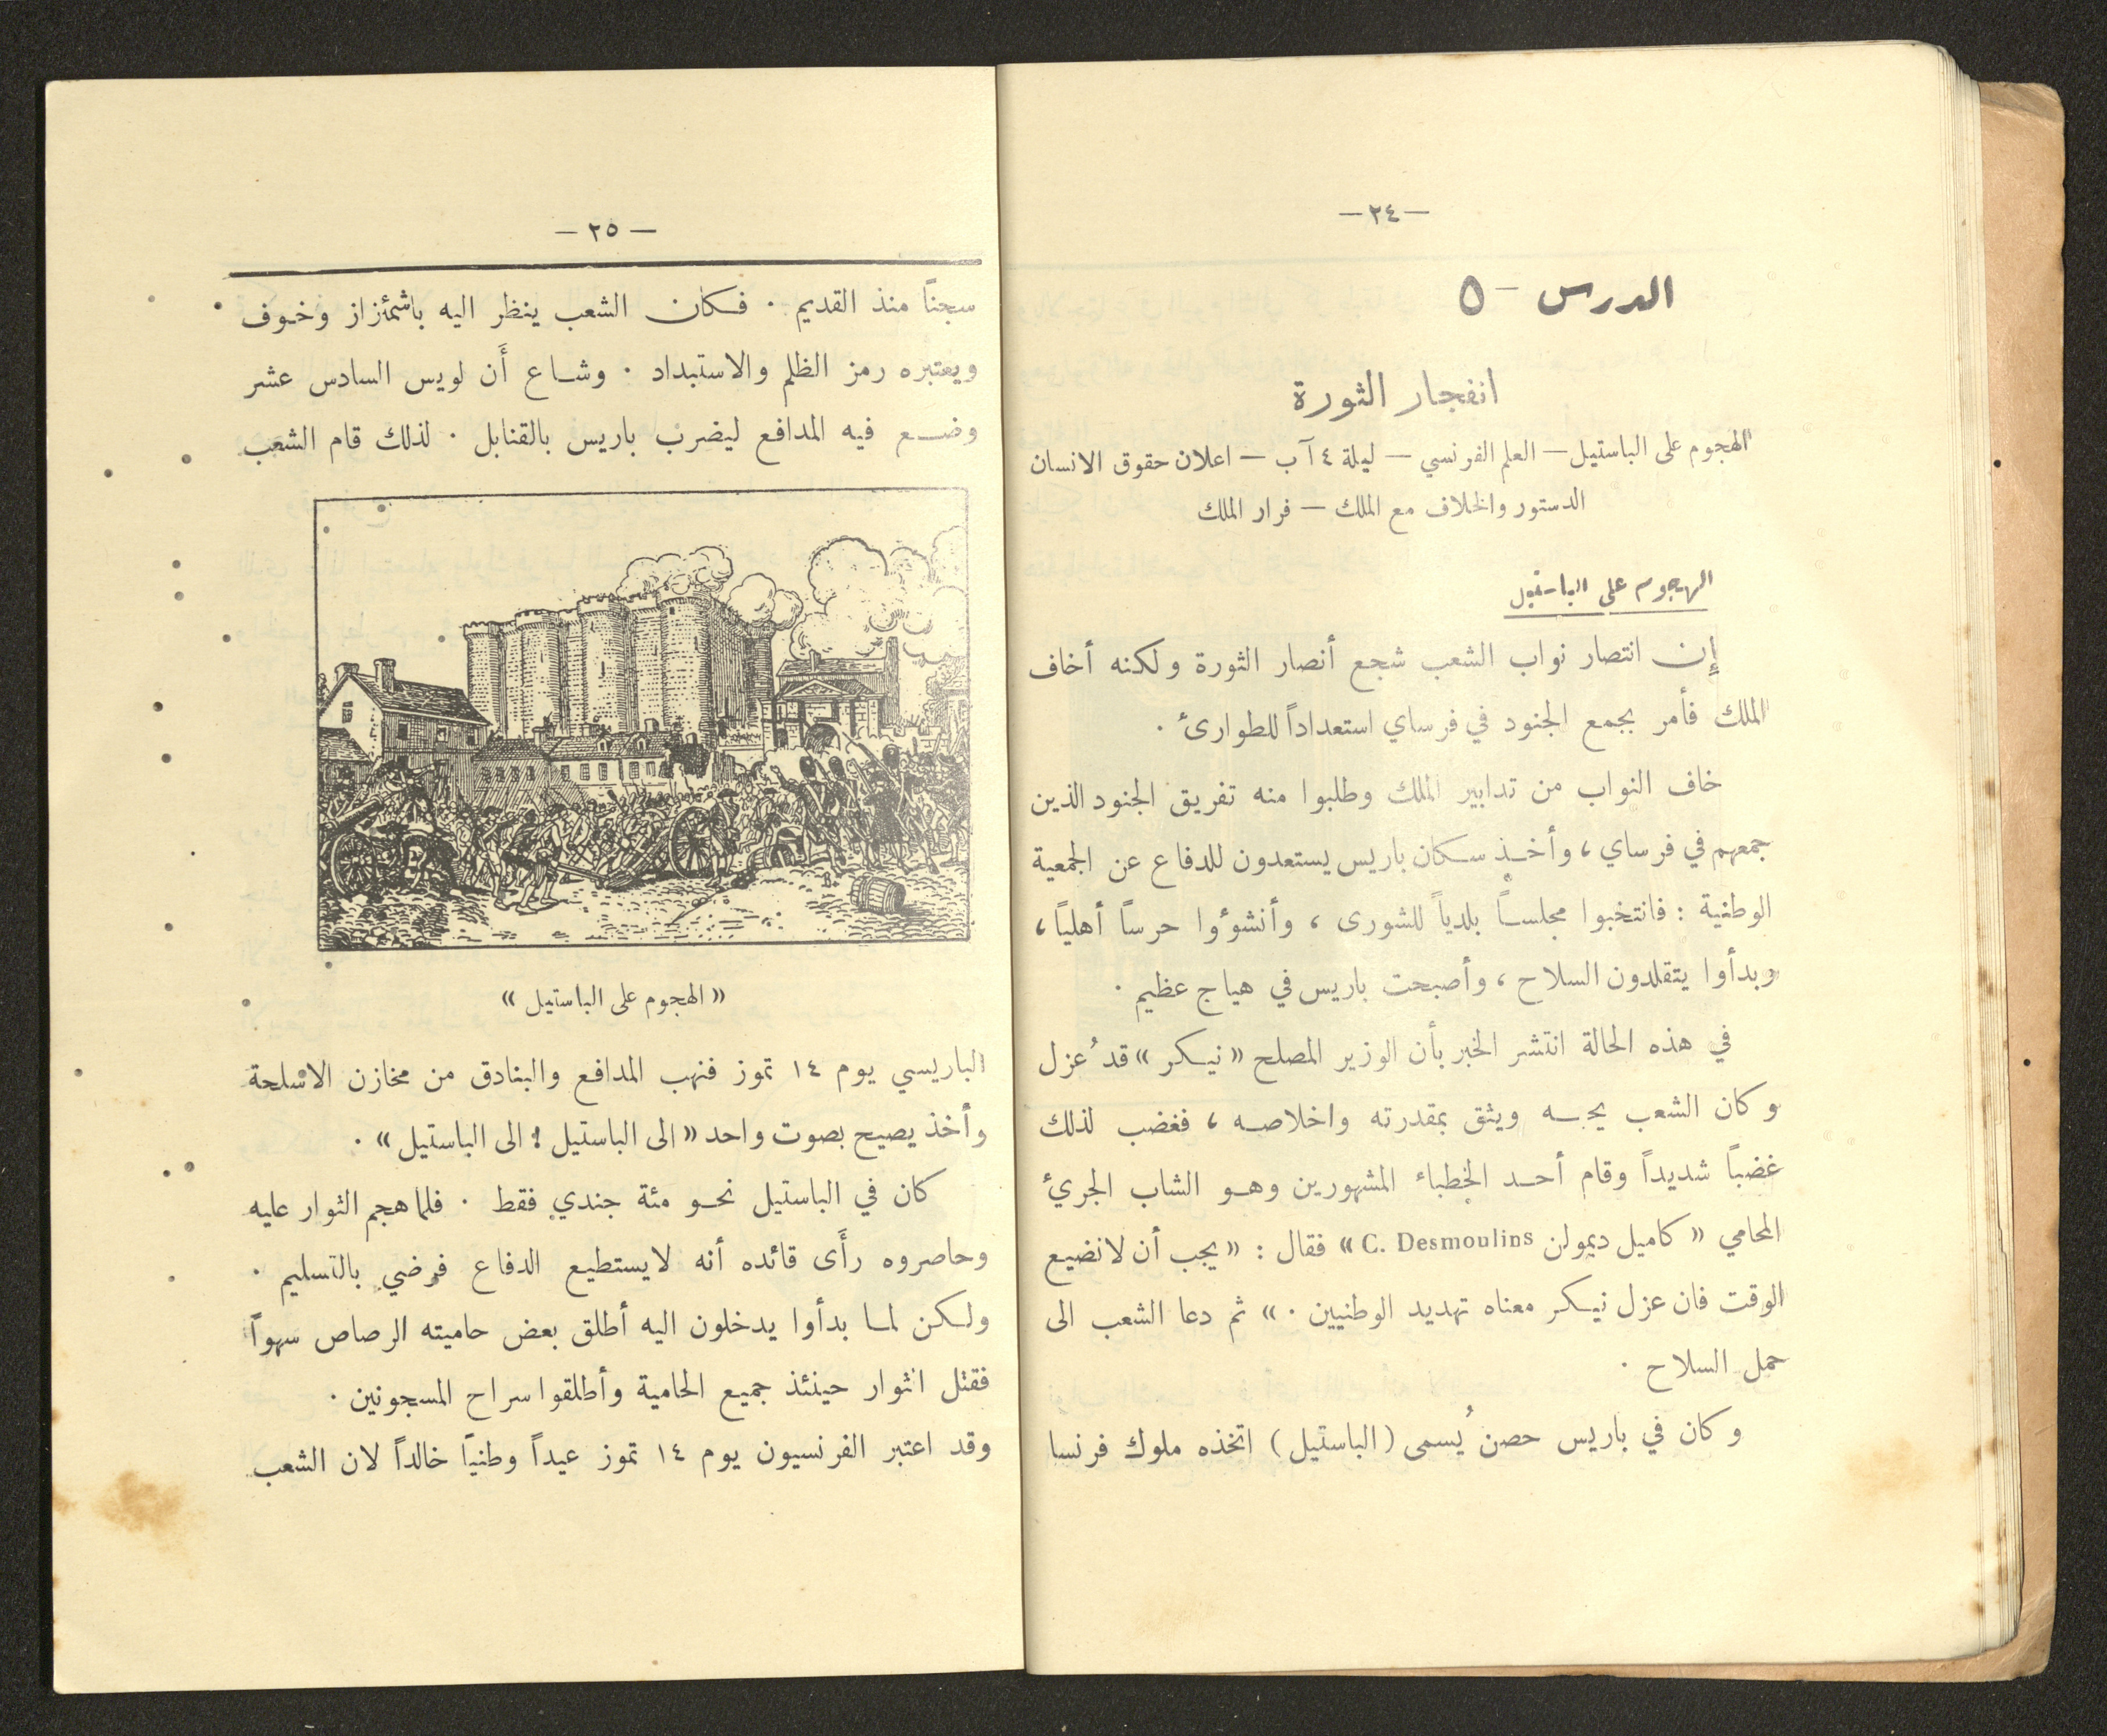 —٢٤—
الدرس — ٥
انفجار الثورة
الهجوم على الباستيل — العلم الفرنسي — ليلة ٤ آب — اعلان حقوق الانسان
الدستور والخلاف مع الملك — فرار الملك
الهجوم على الباستيل
إن انتصار نواب الشعب شجع أنصار الثورة ولكنه أخاف
الملك فأمر بجمع الجنود في فرساي استعداداً للطوارئ .
خاف النواب من تدابير الملك وطلبوا منه تفريق الجنود الذين
جمعهم في فرساي ، وأخذ سكان باريس يستعدون للدفاع عن الجمعية
الوطنية : فانتخبوا مجلساً بلدياً للشورى ، وأنشوءُوا حرساً أهلياً ،
وبدأوا يتقلدون السلاح ، وأصبحت باريس في هياج عظيم .
في هذه الحالة انتشر الخبر بأن الوزير المصلح « نيكر » قد ُعزل
وكان الشعب يحبه ويثق بمقدرته واخلاصه ، فغضب لذلك
غضباً شديداً وقام أحد الخطباء المشهورين وهو الشاب الجريء
المحامي « كاميل ديمولن C. Desmoulins » فقال : « يجب أن لانضيع
الوقت فان عزل نيكر معناه تهديد الوطنيين . » ثم دعا الشعب الى
حمل السلاح .
وكان في باريس حصن ُيسمى ( الباستيل ) اتخذه ملوك فرنسا
— ٢٥ —
سجناً منذ القديم . فكان الشعب ينظر اليه باشمئزاز وخوف
ويعتبره رمز الظلم والاستبداد . وشاع أَن لويس السادس عشر
وضع فيه المدافع ليضرب باريس بالقنابل . لذلك قام الشعب
« الهجوم على الباستيل »
الباريسي يوم ١٤ تموز فنهب المدافع والبنادق من مخازن الاسلحة
وأخذ يصيح بصوت واحد « الى الباستيل ! الى الباستيل » .
كان في الباستيل نحو مئة جندي فقط . فلما هجم الثوار عليه
وحاصروه رأَى قائده أنه لايستطيع الدفاع فرضي بالتسليم .
ولكن لما بدأوا يدخلون اليه أطلق بعض حاميته الرصاص سهواً
فقتل الثوار حينئذ جميع الحامية وأطلقوا سراح المسجونين .
وقد اعتبر الفرنسيون يوم ١٤ تموز عيداً وطنياً خالداً لان الشعب